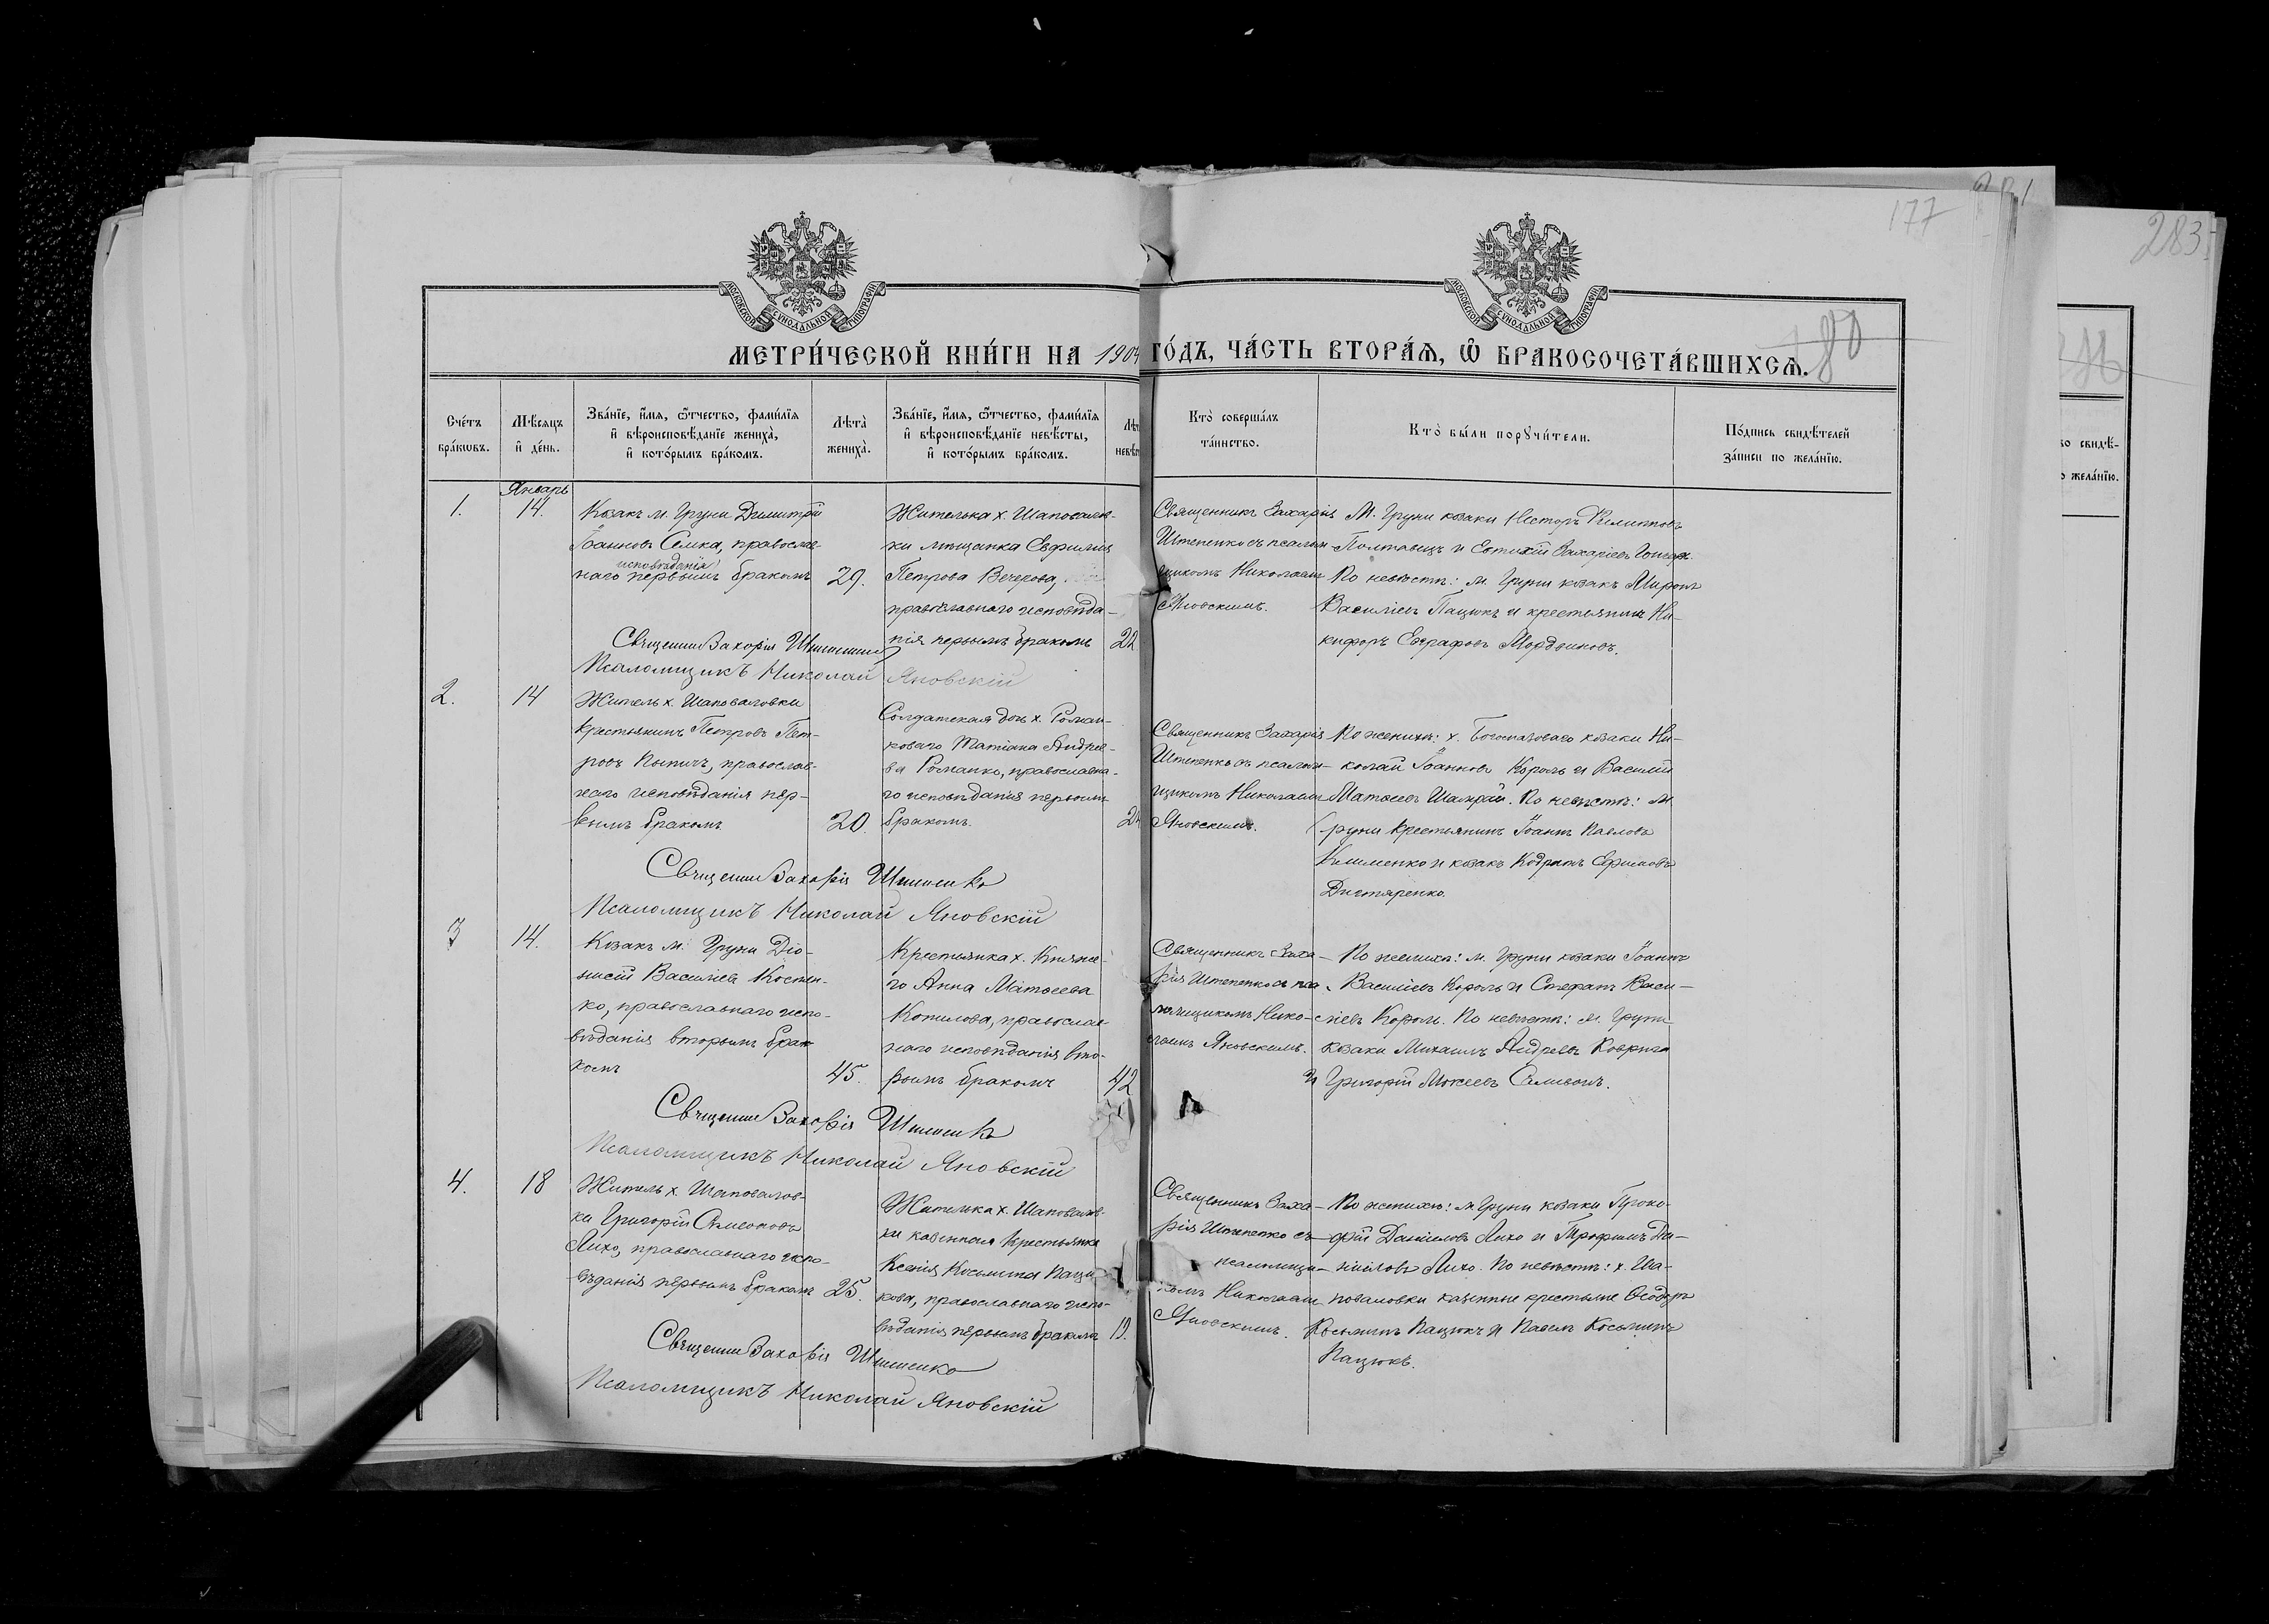 177
283
80
МОСКОВСКОЙ СУНОДАЛЬНОЙ ТИПОГРАФІИ
МОСКОВСКОЙ СУНОДАЛЬНОЙ ТИПОГРАФІИ
МЕТРИ́ЧЕСКОЙ КНИ́ГИ НА 1904 ГО́ДЪ, ЧА́СТЬ ВТОРА́Я, Ѿ БРАКОСОЧЕТА́ВШИХСЯ.
Сче́тъ бра́кѡвъ.
Мѣ́сяцъ и҆ де́нь.
Зва́нїе, и҆́мя, ѻ҆́тчество, фами́лїя
и҆ вѣроисповѣ́данїе жениха̀,
и҆ кото́рымъ бра́комъ.
Лѣта̀ жениха̀.
Зва́нїе, и҆́мя, ѻ҆́тчество, фами́лїя
и҆ вѣроисповѣ́данїе невѣ́сты,
и҆ кото́рымъ бра́комъ.
Кто̀ соверша́лъ
та́инство.
Кто̀ бы́ли порꙋчи́тели.
По́дпись свидѣ́телей
за́писи по жела́нїю.
Январь
1.
14.
Козакъ м. Груни Димитрій
Іоанновъ Семка, православ-
исповѣданія
наго первымъ бракомъ
29.
Жителька х. Шаповалов-
ки мѣщанка Евфимія
Петрова Вечерова,
православнаго исповѣда-
нія первымъ бракомъ
22
Священникъ Захарія
Штепенко съ псалом-
щикомъ Николаем
Яновскимъ.
М. Груни козаки Несторъ Филипповъ
Полтавецъ и Евтихій Захаріевъ Гончар.
По невѣстѣ: м. Груни козакъ Миронъ
Василіевъ Пацюкъ и крестьянинъ Ни-
кифоръ Евграфовъ Мордвиновъ.
Священник Захарія Штепенко
Псаломщикъ Николай Яновскій
2.
14
Житель х. Шаповаловки
крестьянинъ Петровъ Пет-
ровъ православ-
наго исповѣданія пер-
вымъ бракомъ
20.
Солдатская дочь х. Роман-
коваго Татіана Андрее-
ва Романко, православна-
го исповѣданія первымъ
бракомъ.
Священникъ Захарія
Штепенко съ псалом-
щикомъ Николаем
Яновскимъ.
По женихѣ: х. Богомазоваго козаки Ни-
колай Іоанновъ Король и Василій
Матвѣевъ Шамрай. По невѣстѣ: м.
Груни крестьянинъ Іоаннъ Павловъ
Клименко и козакъ Кодратъ Ефимовъ
Дигтяренко.
Священник Захарія Штепенко
Псаломщикъ Николай Яновскій
3
14.
Козакъ м. Груни Діо-
нисій Василіевъ Костен-
ко, православнаго испо-
вѣданія вторымъ бра-
комъ
45.
Крестьянка х. Княже-
го Анна Матвѣева
Копилова, православ-
наго исповѣданія вто-
рымъ бракомъ
42
Священникъ Заха-
рія Штепенко съ пса-
ломщикомъ Нико-
лаемъ Яновскимъ.
По женихѣ: м. Груни козаки Іоаннъ
Василіевъ Король и Стефанъ Васи-
ліевъ Король. По невѣстѣ: м. Груни
козаки Михаилъ Андреевъ Коврига
и Григорій Мокеевъ Селивонъ.
Священник Захарія Штепенко
Псаломщикъ Николай Яновскій
4.
18
Житель х. Шаповалов-
ки Григорій Симеоновъ
Лихо, православнаго испо-
вѣданія первымъ бракомъ
25.
Жителька х. Шаповалов-
ки казенная крестьянка
Ксенія Косьмина Пацю-
кова, православнаго испо-
вѣданія первымъ бракомъ
19.
Священникъ Заха-
рія Штепенко съ
псаломщи-
комъ Николаем
Яновскимъ.
По женихѣ: м Груни козаки Проко-
фій Даніиловъ Лихо и Трофимъ Да-
ніиловъ Лихо. По невѣстѣ: х. Ша-
поваловки казенные крестьяне Ѳеодоръ
Косьминъ Пацюкъ и Павелъ Косьминъ
Пацюкъ.
Священник Захарія Штепенко
Псаломщикъ Николай Яновскій